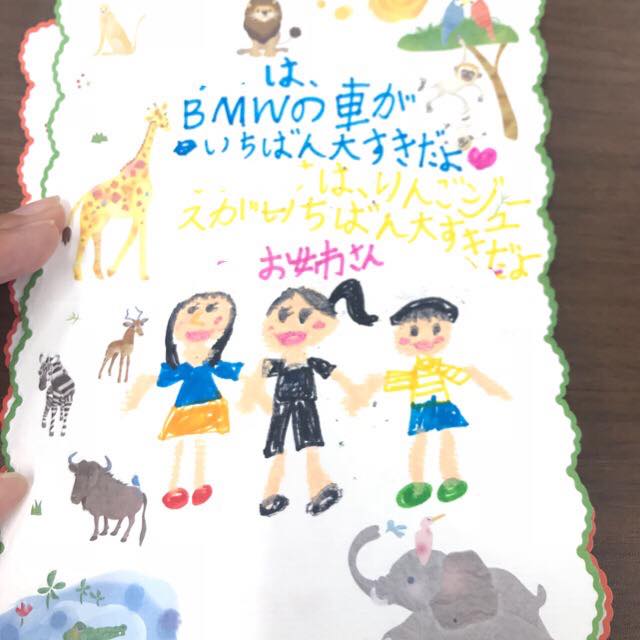 は、
BMWの車が
いちばん大すきだよ
は、りんごジュー
スがいちばん大すきだよ
お姉さん